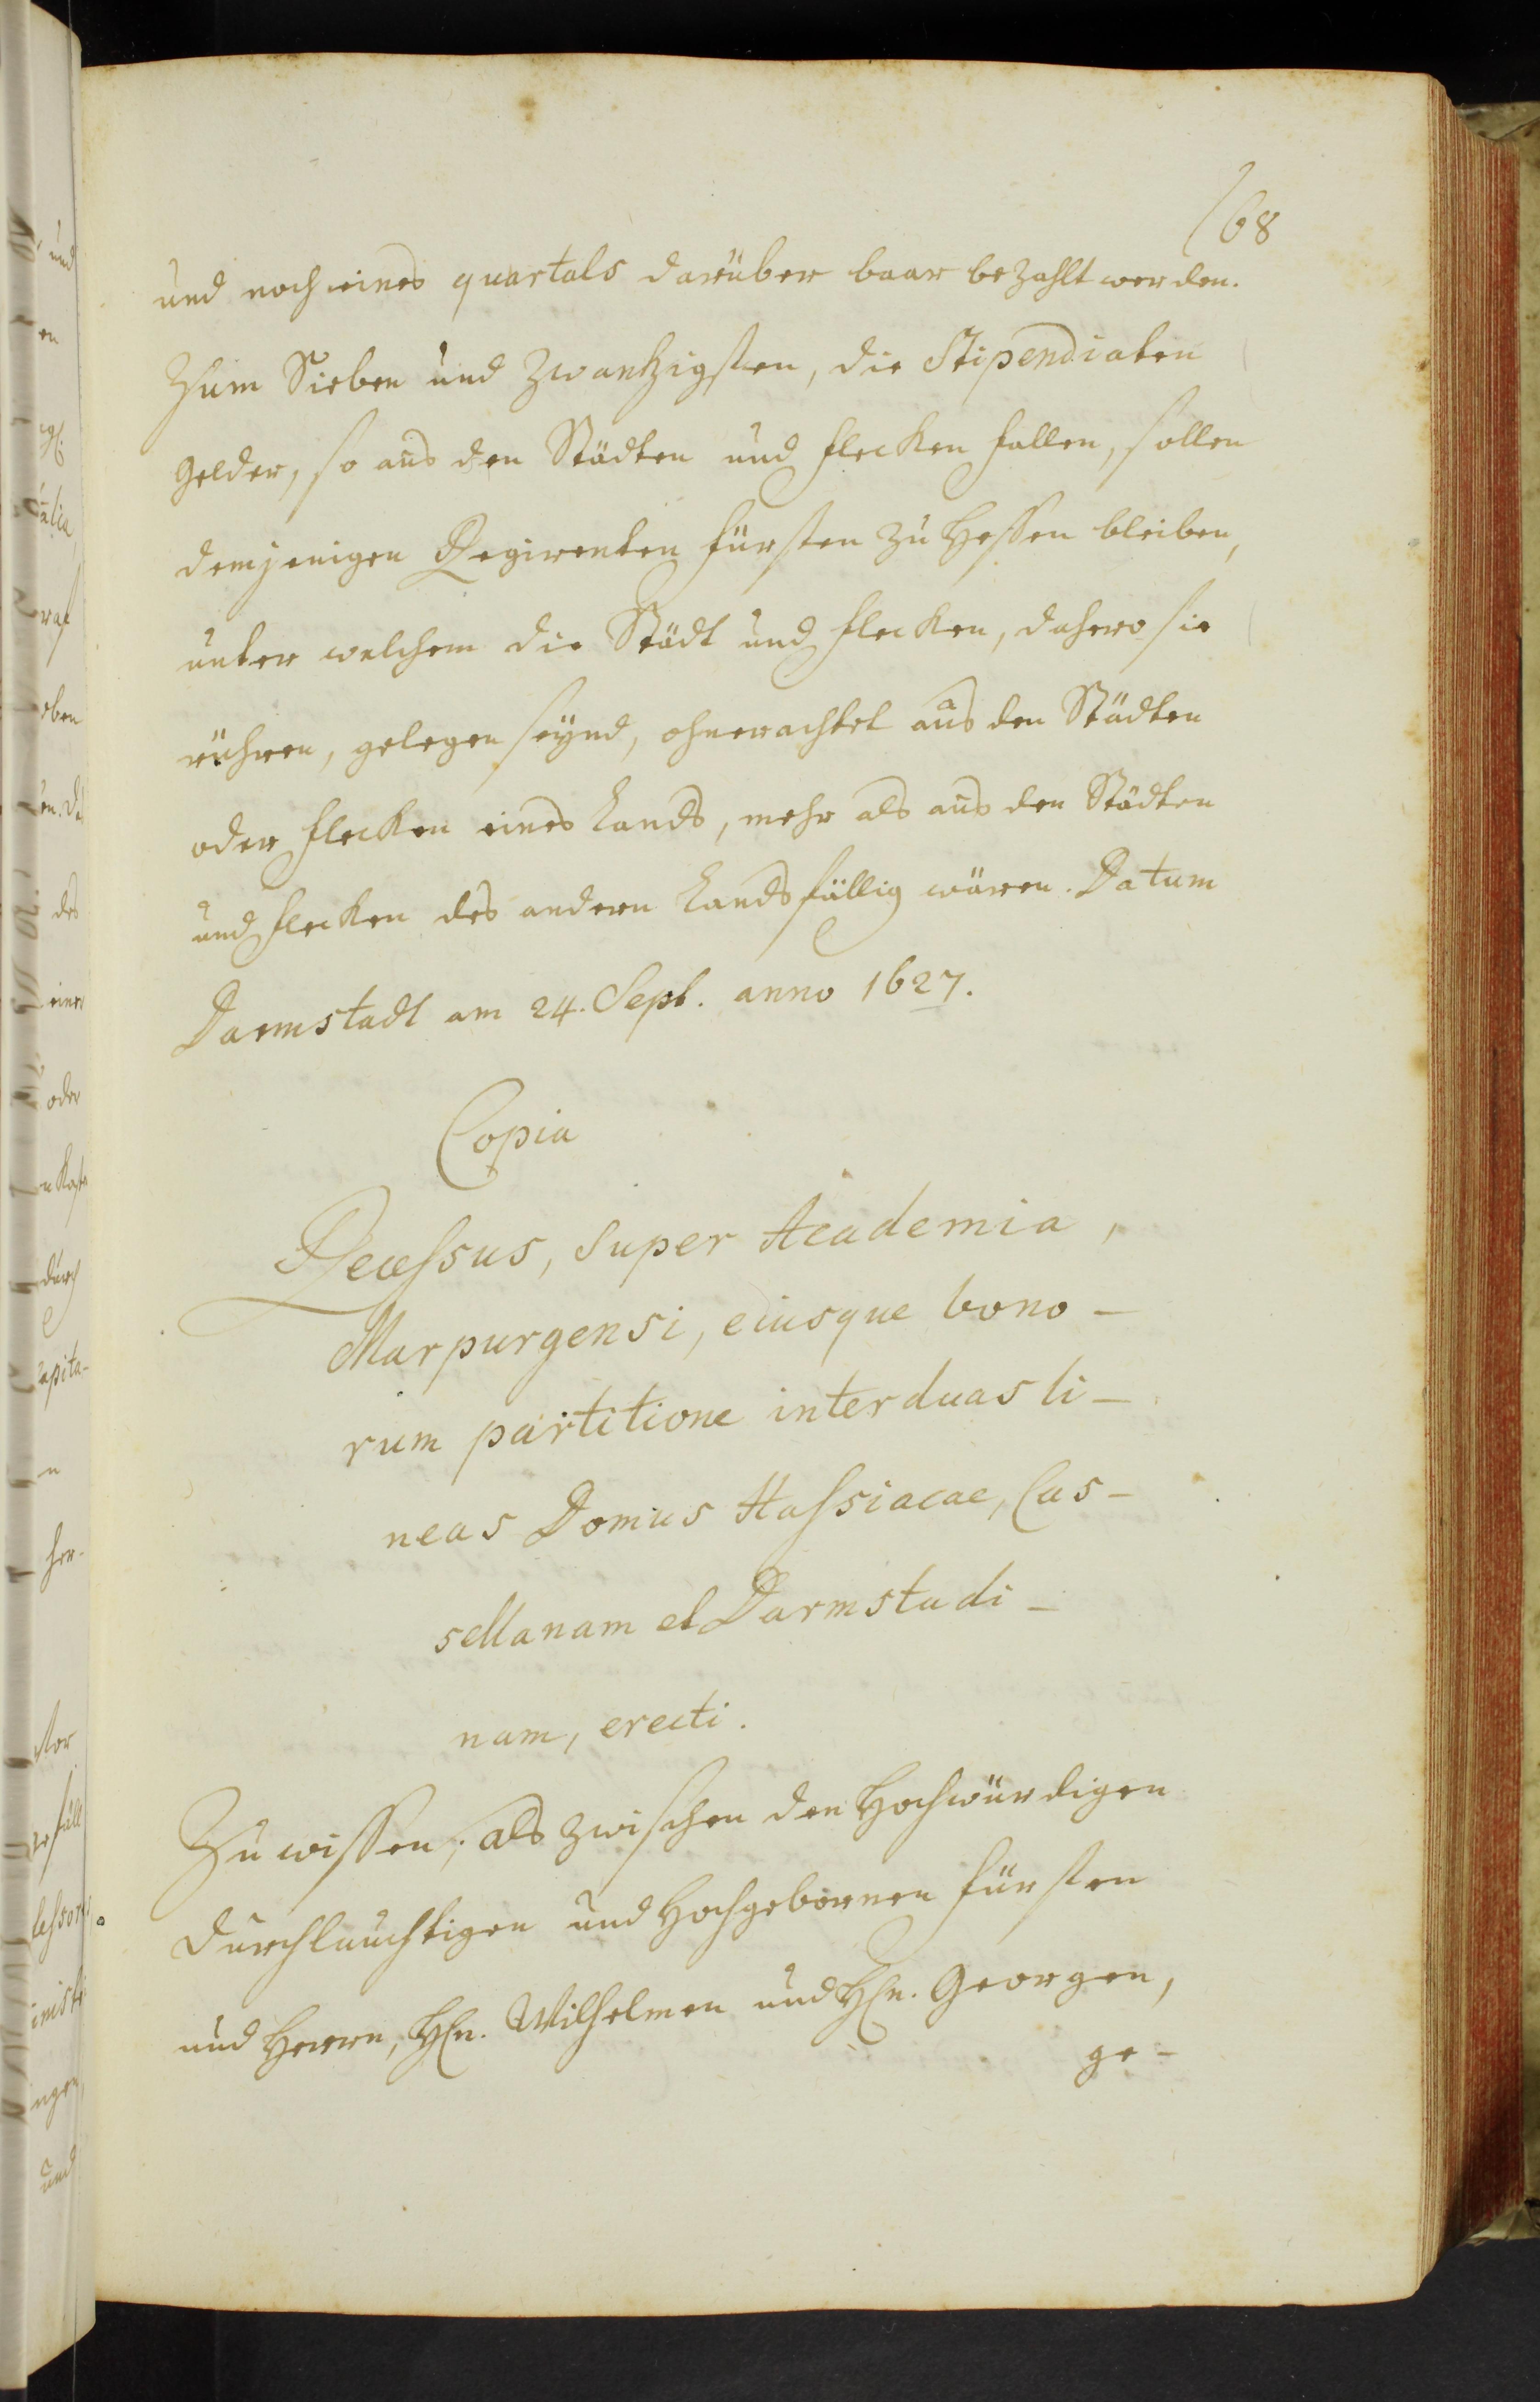 168
und noch eines quartals darüber baar bezahlt werden.
Zum Sieben und zwantzigsten, die Stipendiaten
gelder, so aus den Städten und flecken fallen, sollen
demjenigen Regirenten fürsten zu Hessen bleiben,
unter welchem die Städt und flecken, dahero sie
rühren, gelegen seynd, ohnerachtet aus den Städten
oder flecken eines Lands, mehr als aus den Städten
und flecken des andern Lands fällig wären. Datum
Darmstadt am 24. Sept. anno 1627.
Copia
Recessus, super Academia,
Marpurgensi, eiusque bono-
rum partitione inter duas li-
neas Domus Hassiacae, Cas-
sellanam et Darmstadi-
nam, erecti.
Zu wissen; als zwischen den Hochwürdigen
Durchlauchtigen und Hochgebornen fürsten
und Herrn, Hn. Wilhelmen und Hn. Georgen,
ge-